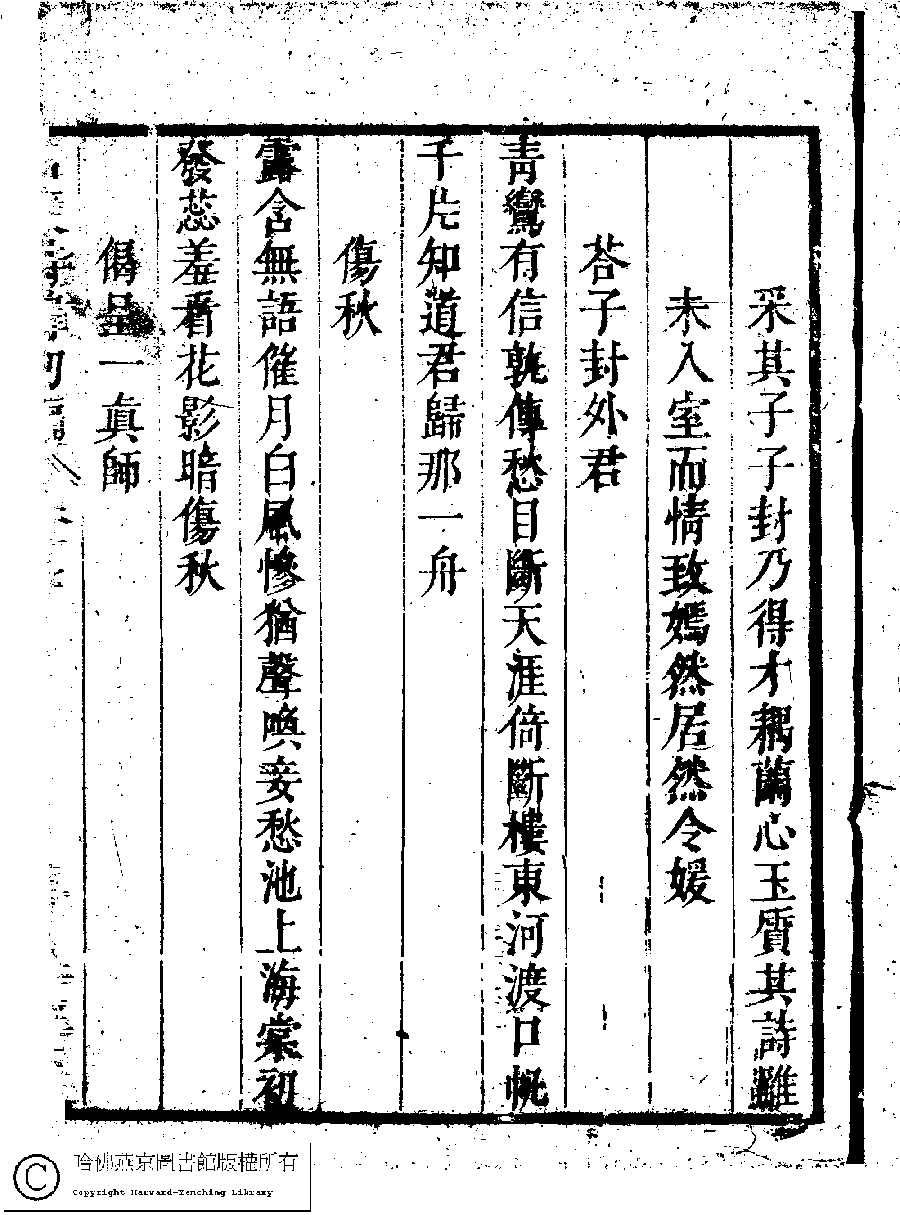 采其子子封乃得才耦蘭心玉質其詩雖
未入室而情致嫣然居然令媛
荅子封外君
青鸞有信孰傳愁目斷天涯倚斷樓東河渡口帆
千片知道君歸那一舟
傷秋
露含無語催月白風慘猶聲喚妾愁池上海棠初
發蕊羞看花影暗傷秋
偈呈一真師
哈佛燕京圖書館版權所有
Copyright Harvard-Yenching Library